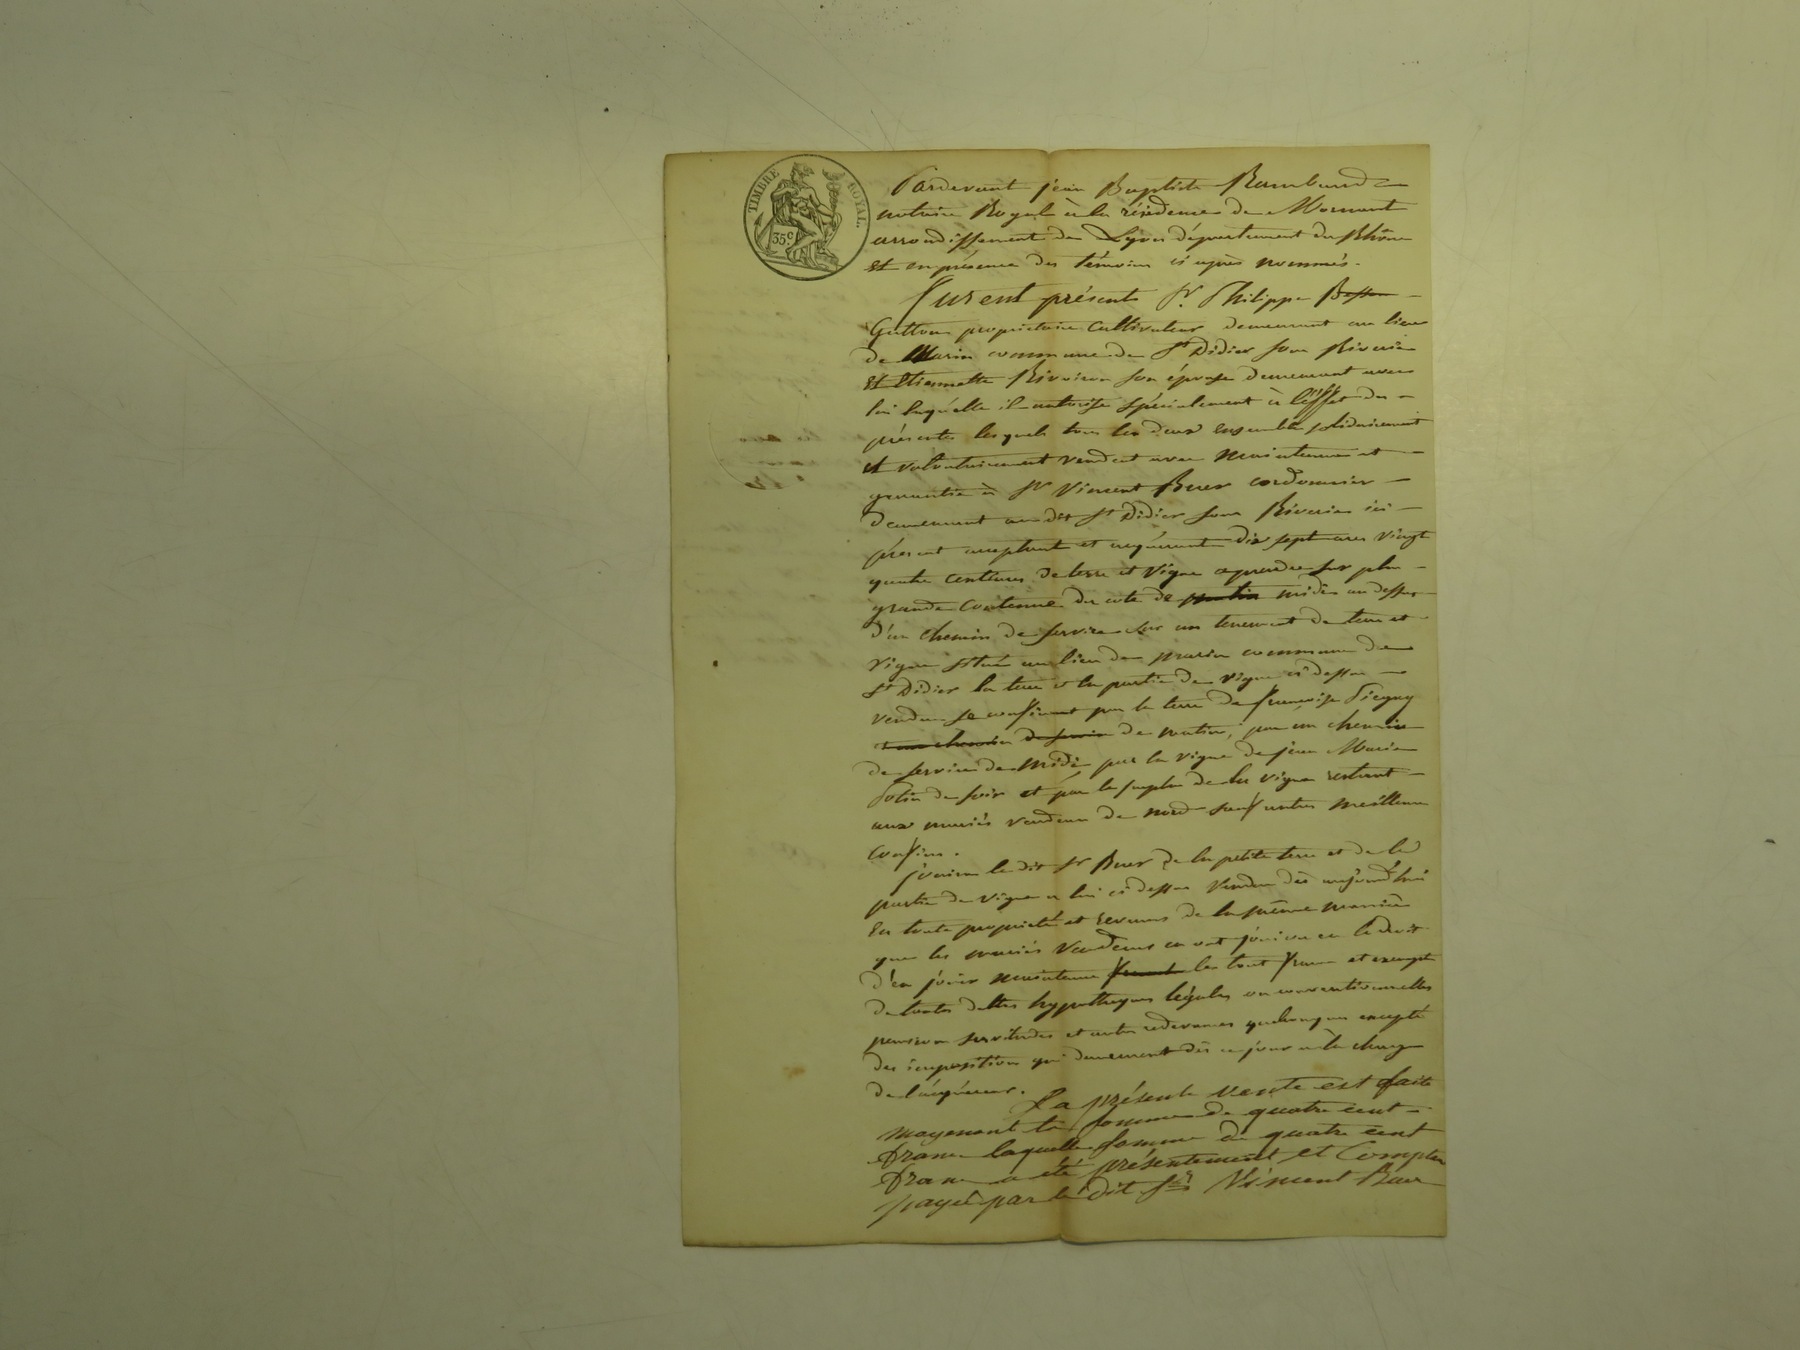 TIMBRE ROYAL.
35c
Pardevant jean Baptiste Rambaud
notaire Royal à la résidence de Mornant
arrondissement de Lyon département du Rhône
Et en présence des témoins ci après nommés.
Furent présents Sr. Philippe Besson
Gutton propriétaire Cultivateur demeurant au lieu
de Marin commune de St Didier sous Riverie
Et Etiennette Rivoiron son épouse demeurant avec
lui laquelle il autorise spécialement à l'effet des
présentes lesquels tous les deux ensemble solidairement
et volontairement vendent avec maintenue et
garantie à Sr Vincent Buer cordonnier
demeurant au dit St Didier sous Riverie ici
présent acceptant et acquérant dix sept ares vingt
quatre centiares de terre et vigne a prendre sur plus
grande Contenue du coté de matin midi au dessus
d'un chemin de service sur un tenement de terre et
vigne situé au lieu de marin commune de
St Didier la terre et la partie de vigne ci dessus
vendue se confinant par la terre de françoise
chemin de service de matin, par un chemin
de service de midi par la vigne de jean Marie
de soir et par le surplus de la vigne restant
aux mariés vendeurs de nord sauf autres meilleurs
Confins.
jouira le dit Sr Buer de la petite terre et de la
partie de vigne a lui ci dessus Vendue dès aujourd'hui
En toute propriété et revenus de la même manière
que les mariés Vendeurs en ont joui ou eu le droit
d'en jouir maintenue franch le tout franc et exempt
de toutes dettes hypothèques légales ou conventionnelles
pension servitudes et autres redevances quelconques excepté
des impositions qui demeurent dès ce jour à la charge
de l'acquéreur. La présente vente est faite
moyenant la somme de quatre cent
franc laquelle somme de quatre cent
franc a été présentement et Comptan
payé par le dit Sr Vincent Buer